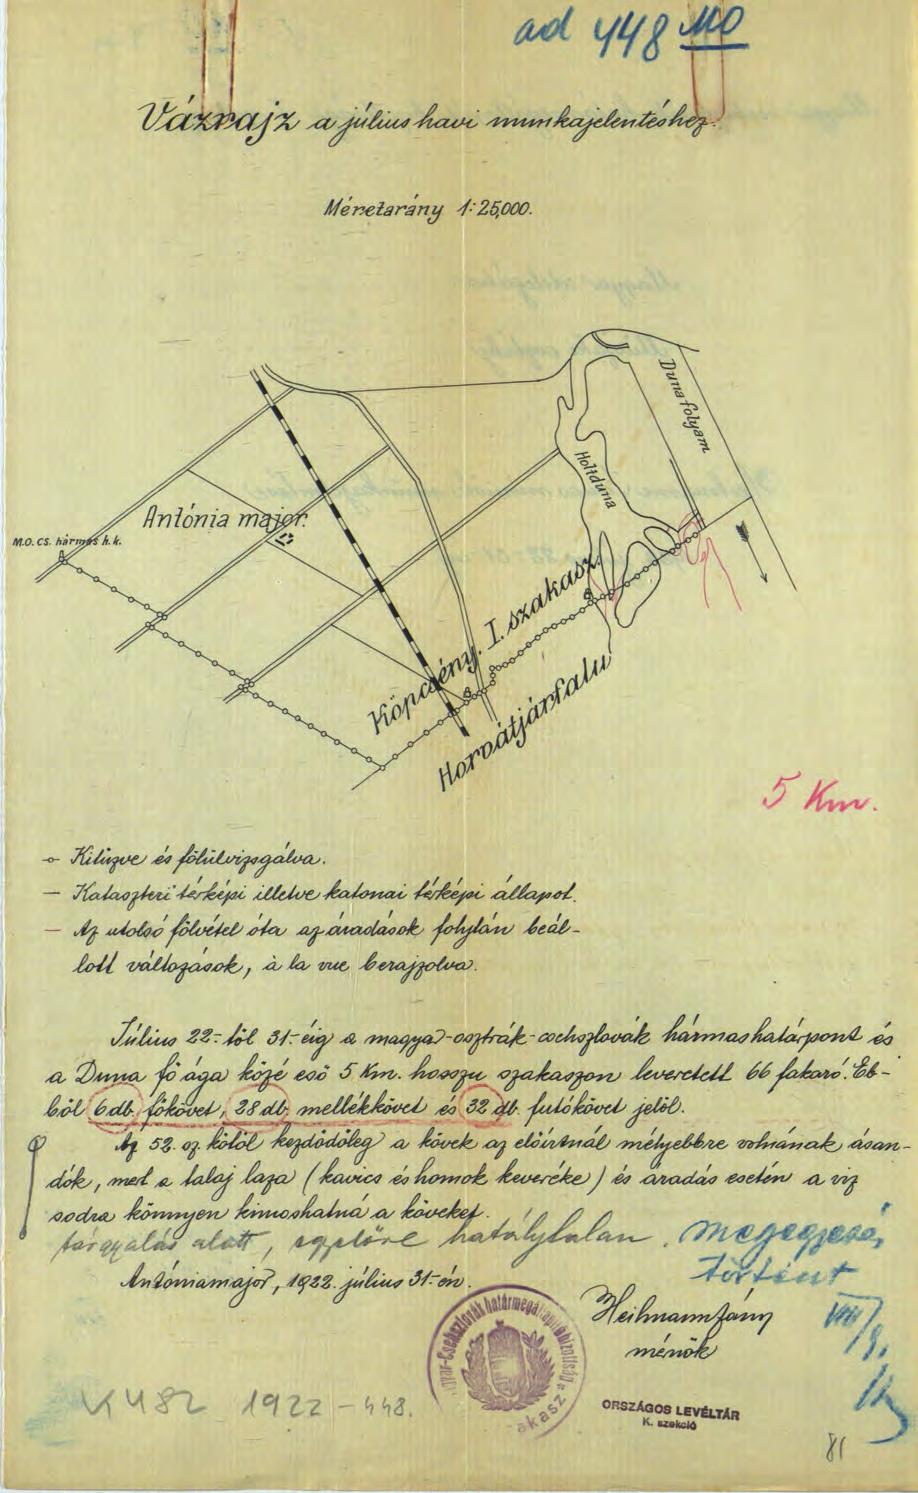 ad 448 MO
Vázrajz a július havi munkajelentéshez.
Méretarány 1:25,000.
Duna folyam
Holtduna
Antónia major.
M.O.CS. hármas h.k.
Köpcsény. I. szakasz.
Horvátjárfalu
5 Km.
-o- Kitűzve és fölülvizsgálva.
— Kataszteri térképi illetve katonai térképi állapot.
— Az utolsó fölvétel óta az áradások folytán beál-
lott változások, à la vue berajzolva.
Július 22.-től 31.-éig a magyar-osztrák-csehszlovák hármashatárpont és
a Duna fő ága közé eső 5 Km. hosszu szakaszon leveretett 66 fakaró. Eb-
ből 6 db. főkövet, 28 db. mellékkövet és 32 db. futókövet jelöl.
Az 52. sz. kőtől kezdődőleg a kövek az előírtnál mélyebbre volnának ásan-
dók, mert a talaj laza (kavics és homok keveréke) és áradás esetén a viz
sodra könnyen kimoshatná a köveket.
tárgyalás alatt, egyelőre hatálytalan.
történt
Antóniamajor, 1922. július 31.-én.
mérnök
ORSZÁGOS LEVÉLTÁR
K. szekció
K 482 1922-448.
81